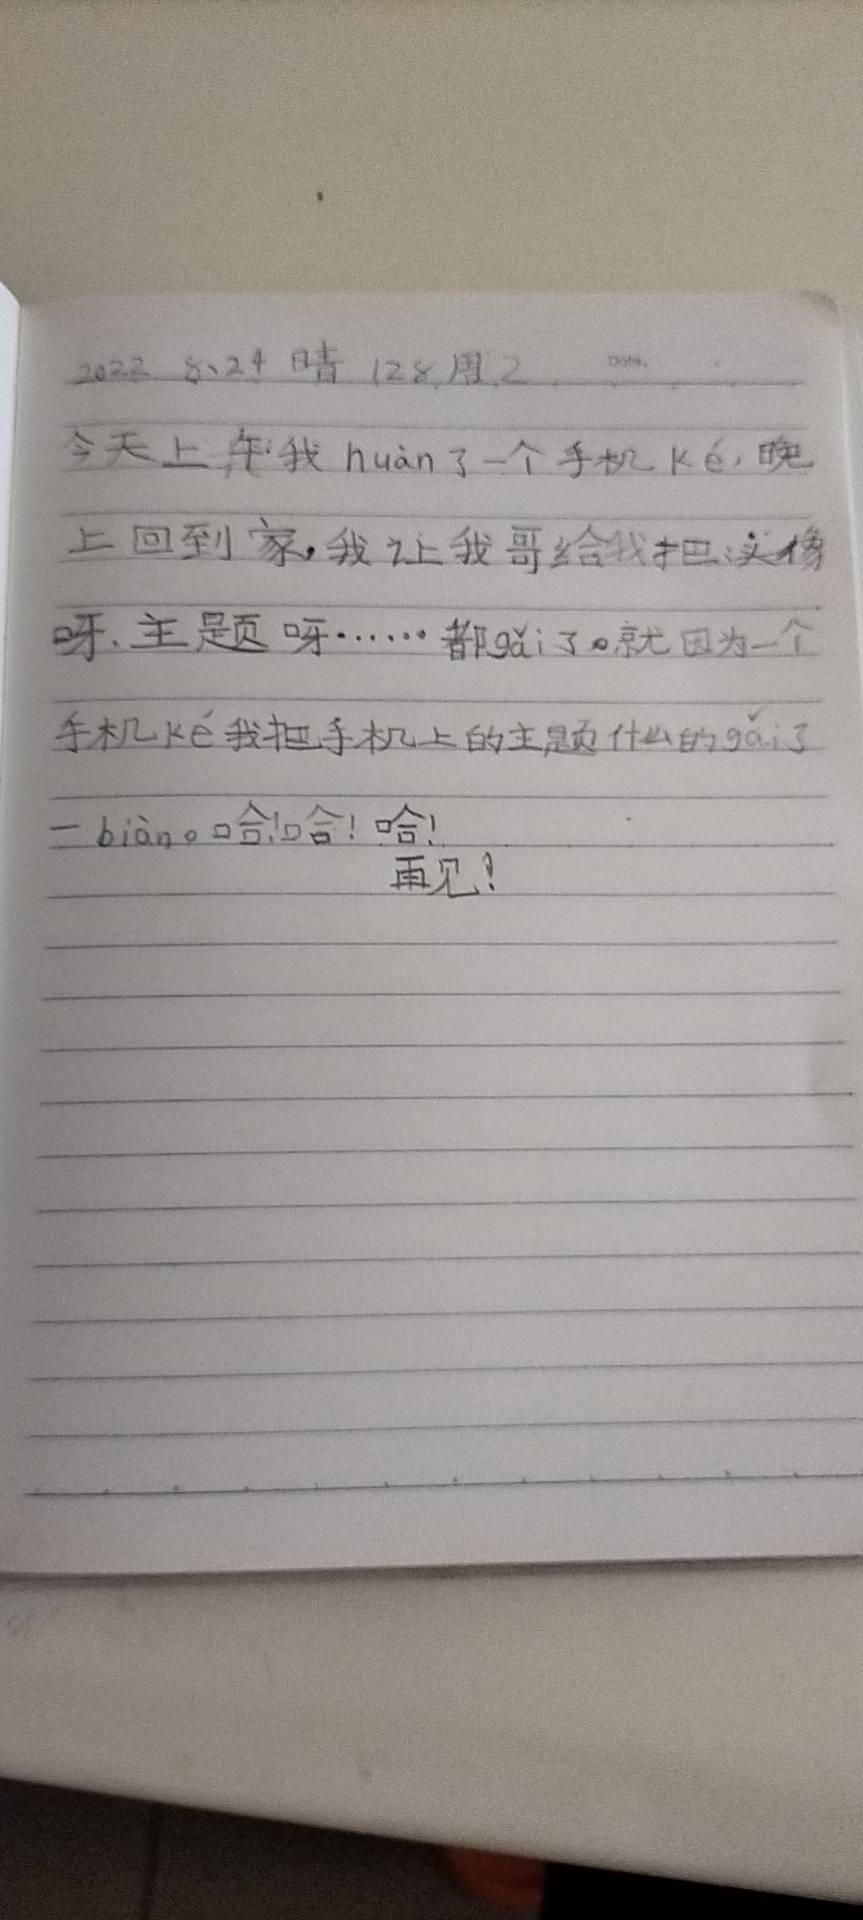 2022 8、24 晴 128 周2 Date.
今天上午我 huàn 了一个手机 Ké，晚
上回到家，我让我哥给我把头像
呀、主题呀……都gǎi了。就因为一个
手机Ké我把手机上的主题什么的gǎi了
一biàn。哈！哈！哈！
再见！